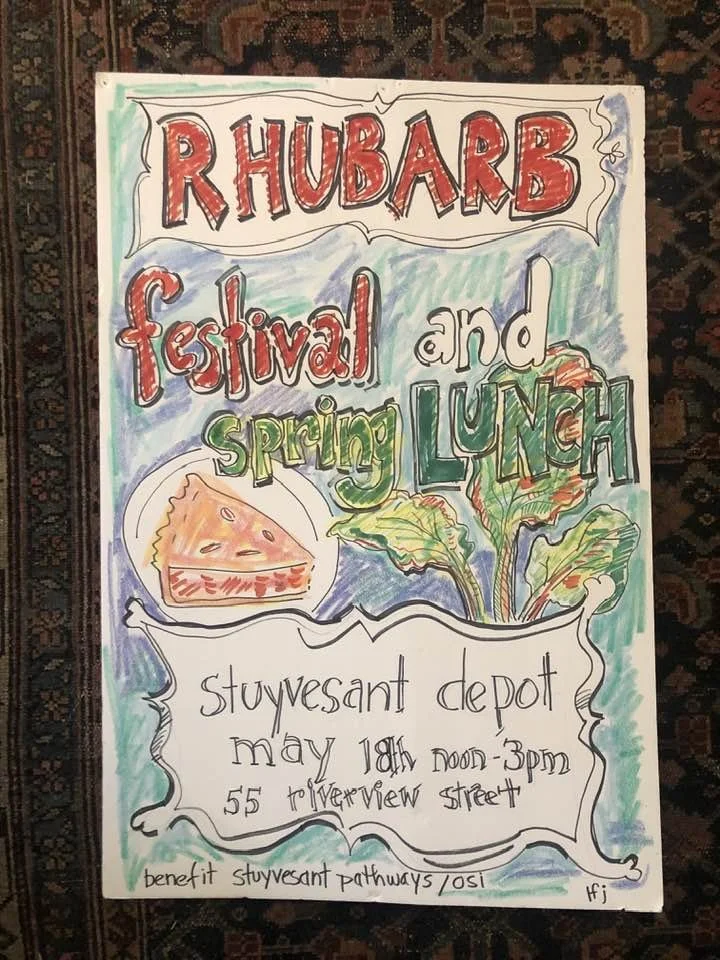 RHUBARB
festival and
spring LUNCH
stuyvesant depot
may 18th noon-3pm
55 riverview street
benefit stuyvesant pathways/osi
lfj